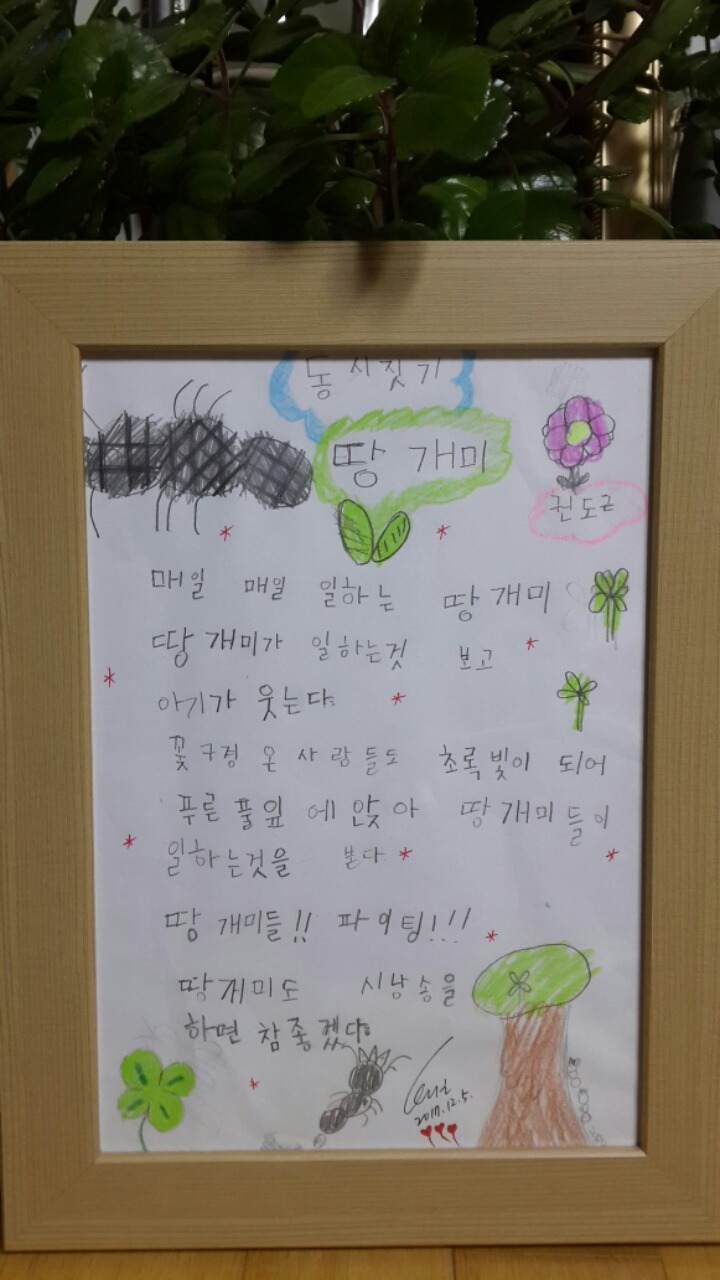 동시짓기
땅 개미
권도근
매일 매일 일하는 땅 개미
땅 개미가 일하는것 보고
아기가 웃는다.
꽃구경 온 사람들도 초록빛이 되어
푸른 풀잎에 앉아 땅 개미들이
일하는것을 본다.
땅 개미들!! 파이팅!!!
땅개미도 시낭송을
하면 참좋겠다.
2017.12.5.